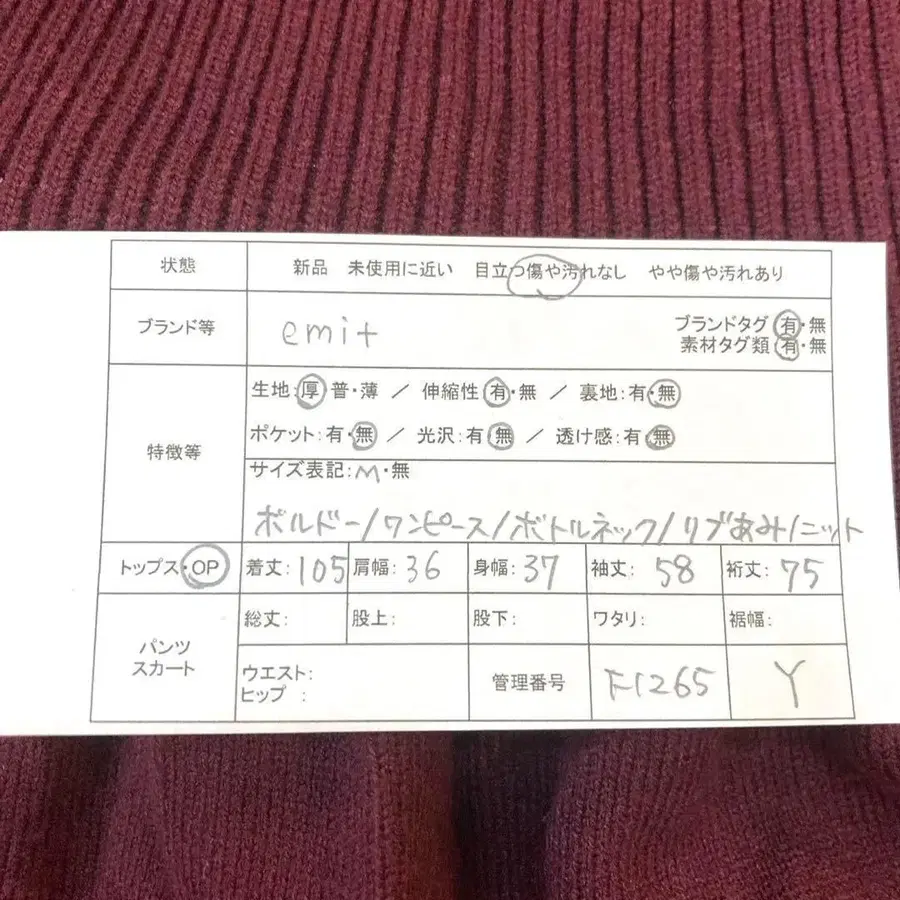 状態 新品 未使用に近い 目立つ傷や汚れなし やや傷や汚れあり
ブランド等 emit ブランドタグ 有・無
素材タグ類 有・無
特徴等 生地:厚 普・薄 / 伸縮性 有・無 / 裏地:有・無
ポケット:有・無 / 光沢:有 無 / 透け感:有 無
サイズ表記:M・無
ボルドー/ワンピース/ボトルネック/リブあみ/ニット
トップス・OP 着丈:105 肩幅:36 身幅:37 袖丈:58 裄丈:75
パンツ スカート 総丈: 股上: 股下: ワタリ: 裾幅:
ウエスト:
ヒップ : 管理番号 F1265 Y